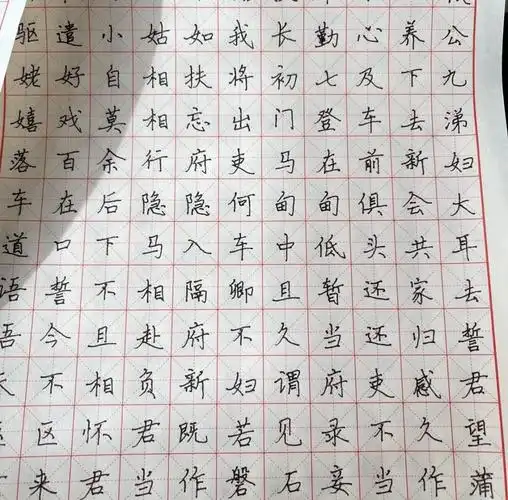 驱遣小姑如我长勤心养公
姥好自相扶将初七及下九
嬉戏莫相忘出门登车去涕
落百余行府吏马在前新妇
车在后隐隐何甸甸俱会大
道口下马入车中低头共耳
语誓不相隔卿且暂还家去
吾今且赴府不久当还归誓
不相负新妇谓府吏感君
区怀君既若见录不久望
来君当作磐石妾当作蒲